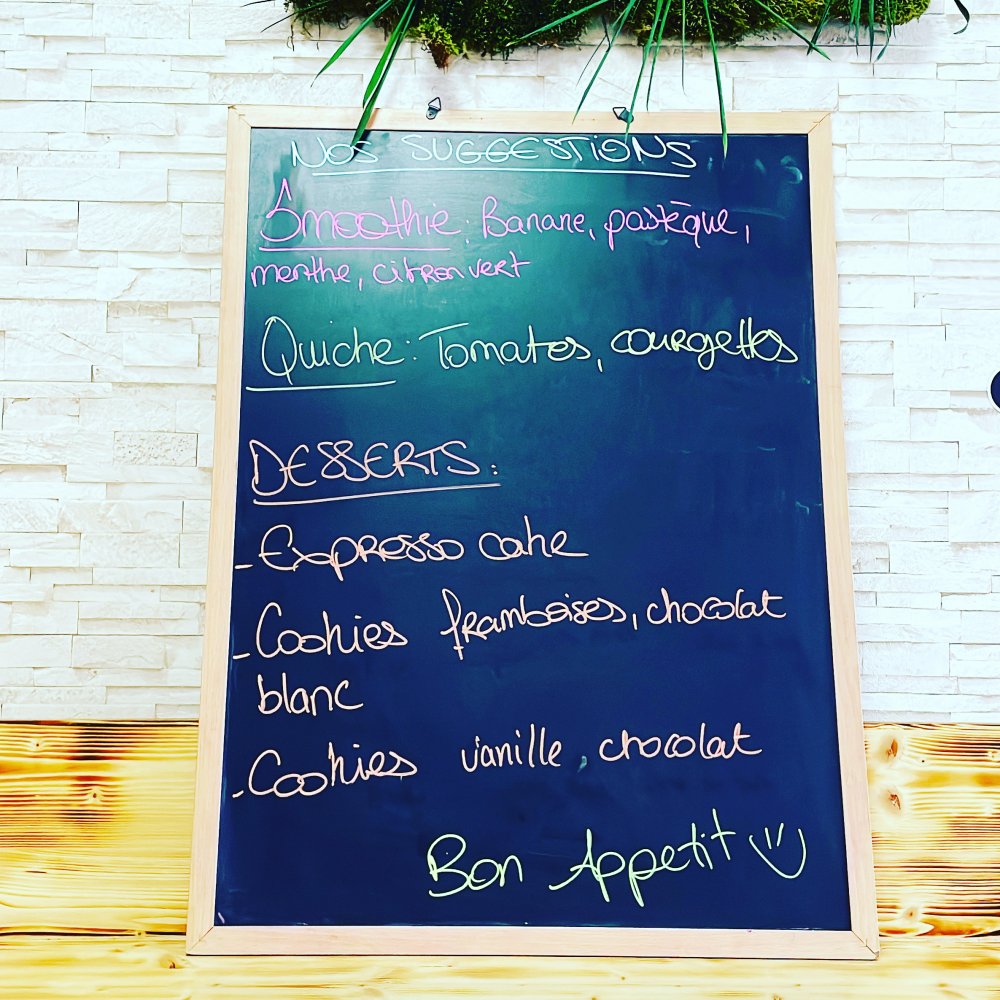 NOS SUGGESTIONS
Smoothie : Banane, pastèque,
menthe, citron vert
Quiche : Tomates, courgettes
DESSERTS :
- Expresso cake
- Cookies framboises, chocolat
blanc
- Cookies vanille, chocolat
Bon Appetit